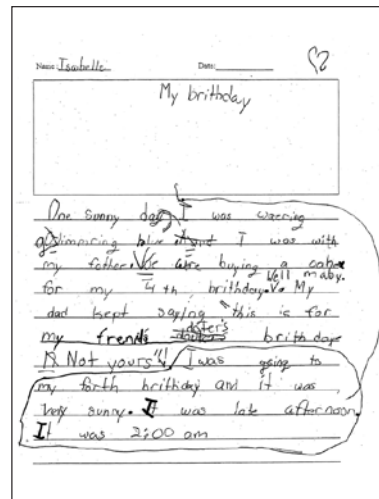 Name: Isabelle Date:
My brithday
One sunny day I was warring
glimpiring blue I was with
my father. We were buying a cake
Well maby.
for my 4th brithday. My
dad kept saying "this is for
my frend's doter's brithday
Not yours"! I was going to
my forth brithday and it was
very sunny. It was late afternoon.
It was 2:00 am